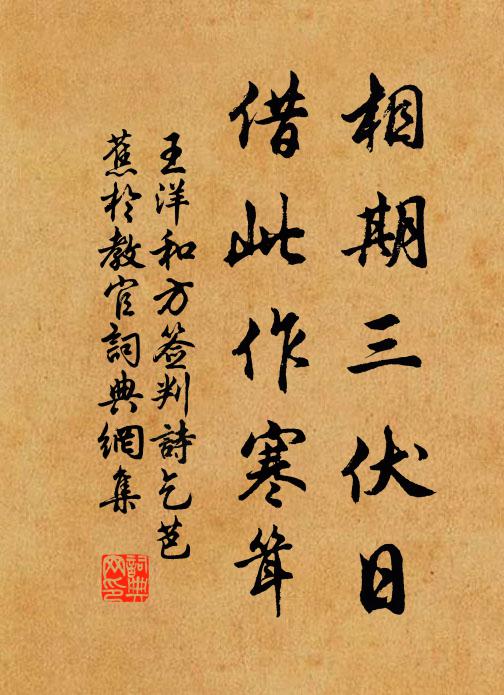 相期三伏日
借此作寒茸
王洋和方签判詩乞芭
蕉於教官詞典網集
詞典
网印